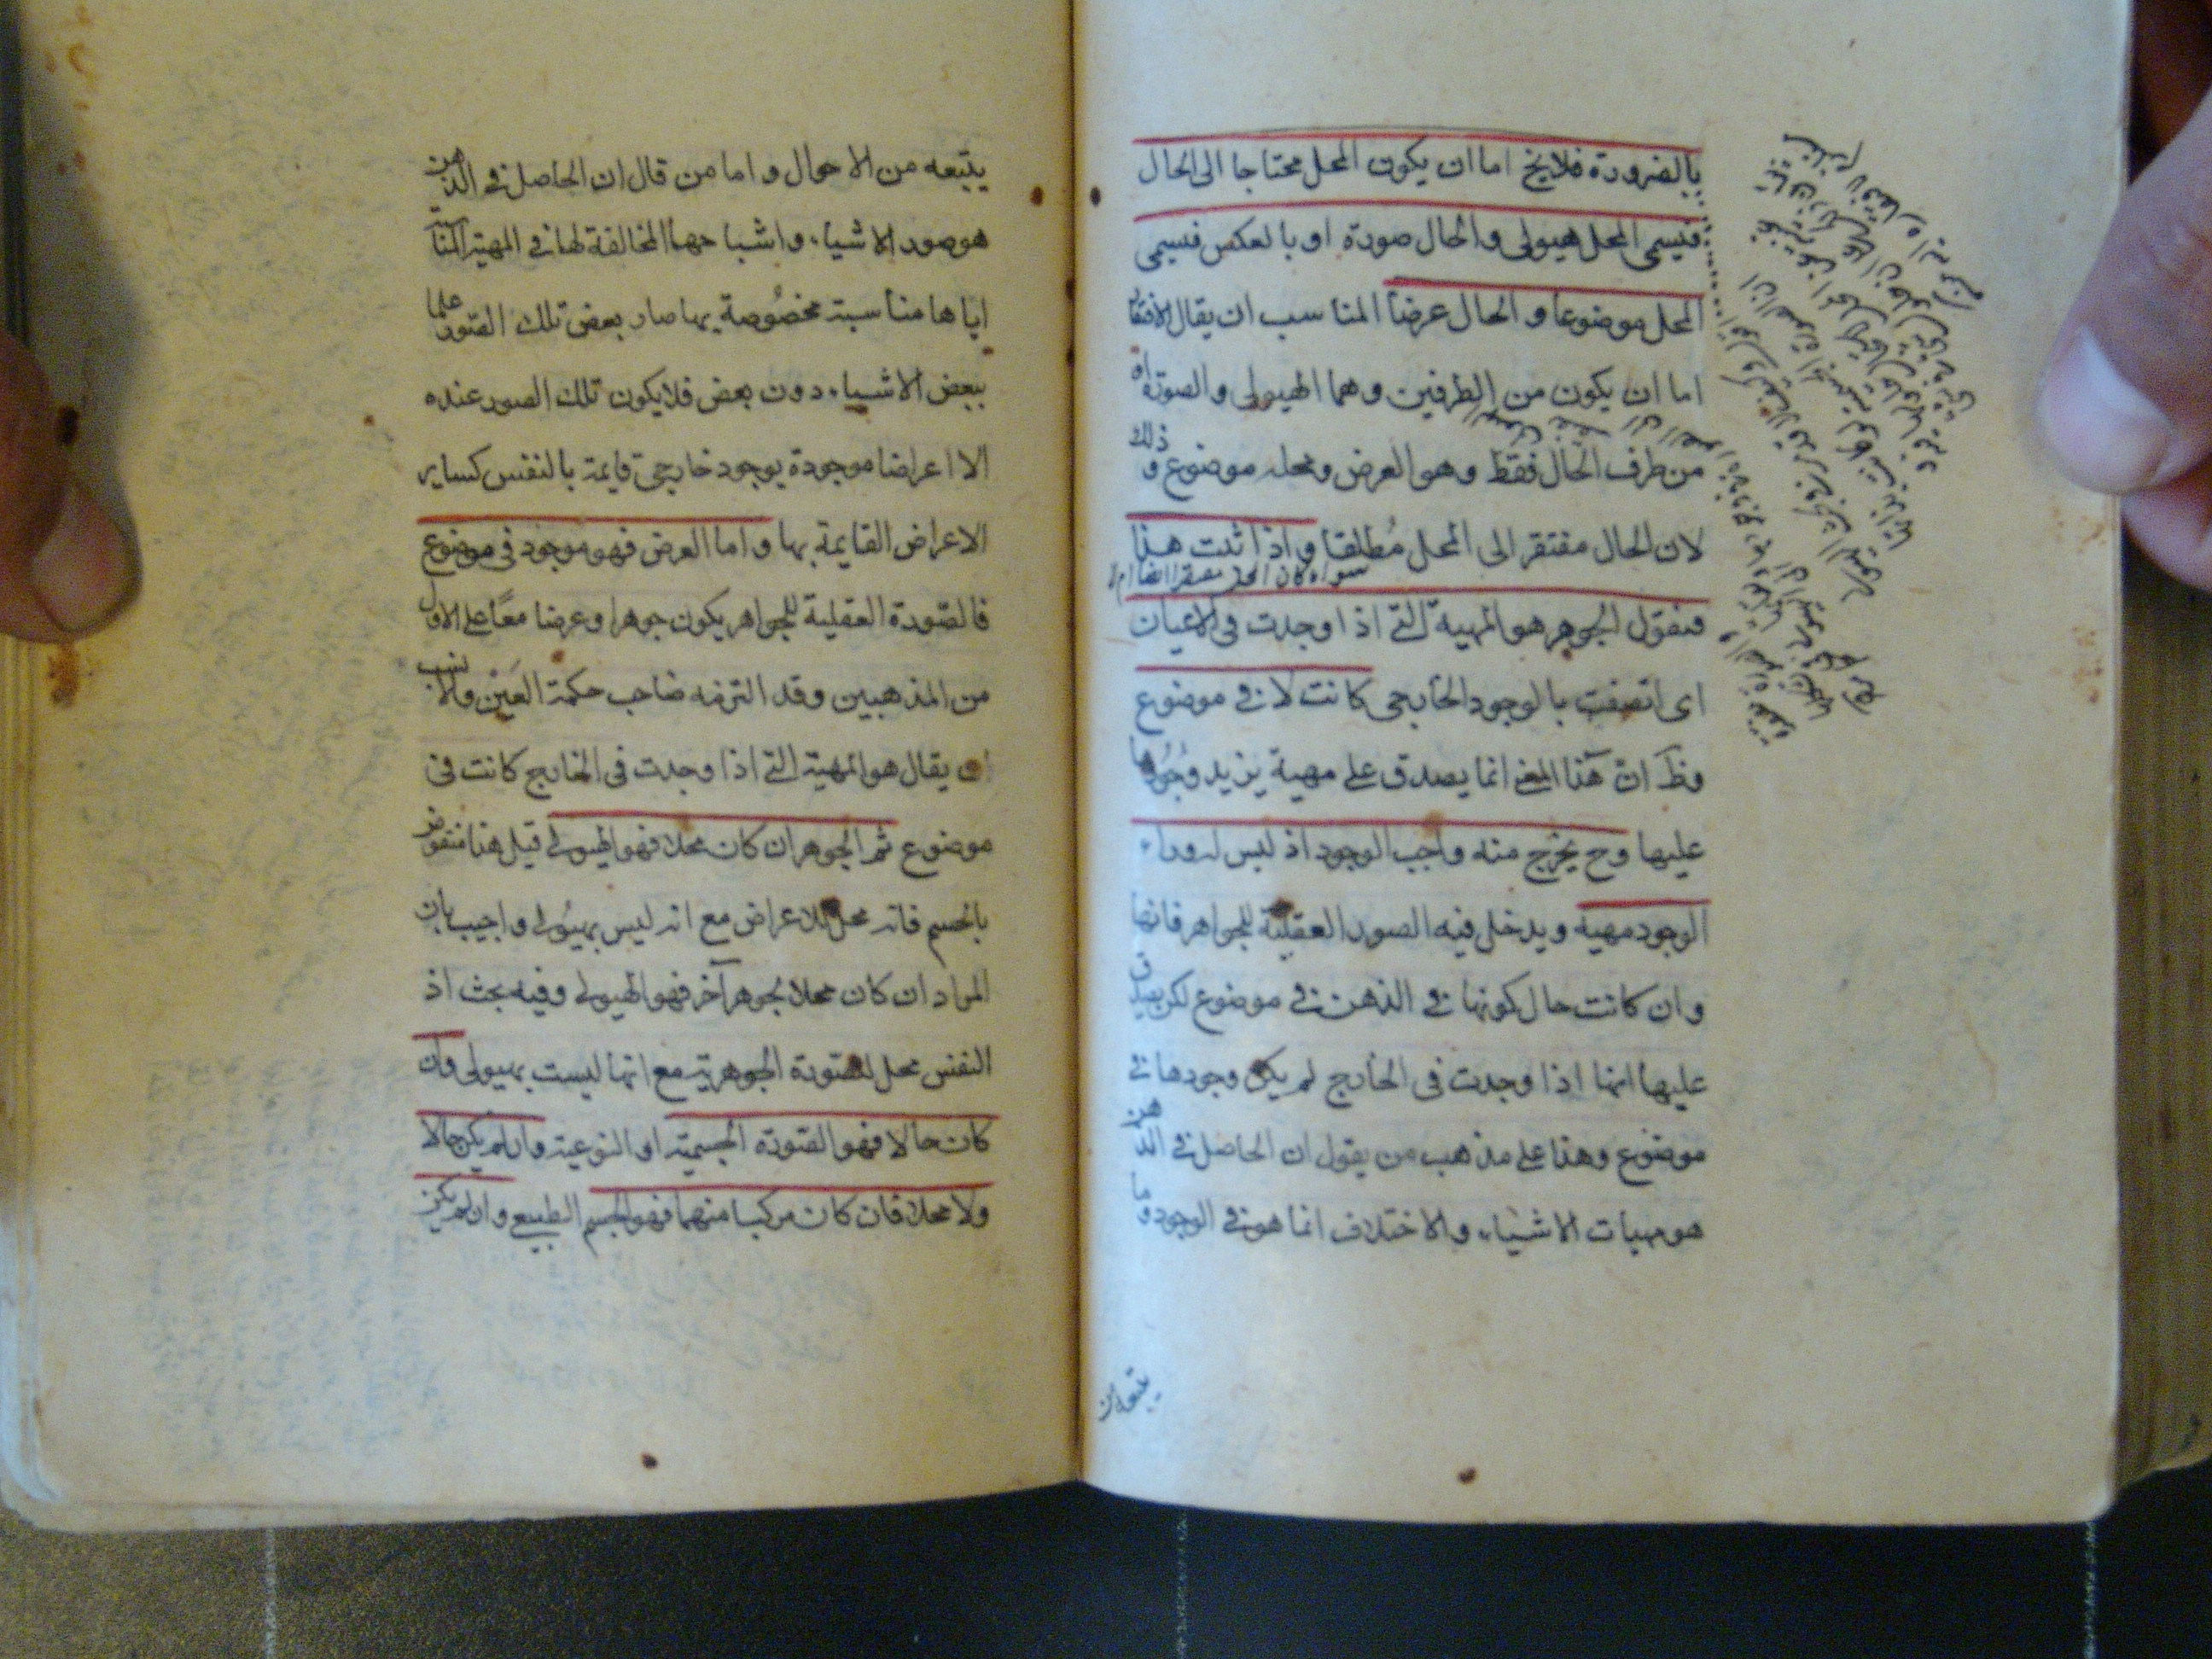 بالضرورة فلايخ اما ان يكون المحل محتاجا الى الحال
فيسمى المحل هيولى والحال صورة او بالعكس فيسمى
المحل موضوعا و الحال عرضا المناسب ان يقال الافتقار
اما ان يكون من الطرفين وهما الهيولى والصورة او
من طرف الحال فقط وهو العرض ومحله موضوع و ذلك
لان الحال مفتقر الى المحل مطلقا واذا ثبت هذا
سواء كان المحل مفتقرا ايضا ام لا
فنقول الجوهر هو المهية التى اذا وجدت فى الاعيان
اى اتصفت بالوجود الخارجى كانت لا فى موضوع
وظ ان هذا المعنى انما يصدق على مهية يزيد وجودها
عليها وح يخرج منه واجب الوجود اذ ليس له وراء
الوجود مهية ويدخل فيه الصور العقلية للجواهر فانها
وان كانت حال كونها فى الذهن فى موضوع لكن يصدق
عليها انها اذا وجدت فى الخارج لم يكن وجودها فى
موضوع وهذا على مذهب من يقول ان الحاصل فى الذهن
هو مهيات الاشياء والاختلاف انما هو فى الوجود وما
يتبعه من
يتبعه من الاحوال و اما من قال ان الحاصل فى الذهن
هو صور الاشياء و اشباحها المخالفة لها فى المهية المناسبة
اياها مناسبة مخصوصة بها صار بعض تلك الصور علما
ببعض الاشياء دون بعض فلا يكون تلك الصور عنده
الا اعراضا موجودة بوجود خارجى قايمة بالنفس كساير
الاعراض القايمة بها و اما العرض فهو موجود فى موضوع
فالصورة العقلية للجواهر يكون جوهرا وعرضا معا على الاول
من المذهبين وقد التزمه صاحب حكمة العين والانسب
ان يقال هو المهية التى اذا وجدت فى الخارج كانت فى
موضوع ثم الجوهر ان كان محلا فهو الهيولى قيل هذا منقوض
بالجسم فانه محل للاعراض مع انه ليس بهيولى واجيب بان
المراد ان كان محلا لجوهر آخر فهو الهيولى وفيه بحث اذ
النفس محل للصورة الجوهرية مع انها ليست بهيولى وان
كان حالا فهو الصورة الجسمية او النوعية وان لم يكن حالا
ولا محلا فان كان مركبا منهما فهو الجسم الطبيعى وان لم يكن